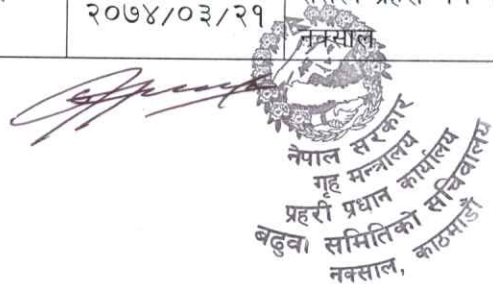 २०७४/०३/२१
नक्साल
नेपाल सरकार
गृह मन्त्रालय
प्रहरी प्रधान कार्यालय
बढुवा समितिको सचिवालय
नक्साल, काठमाडौं